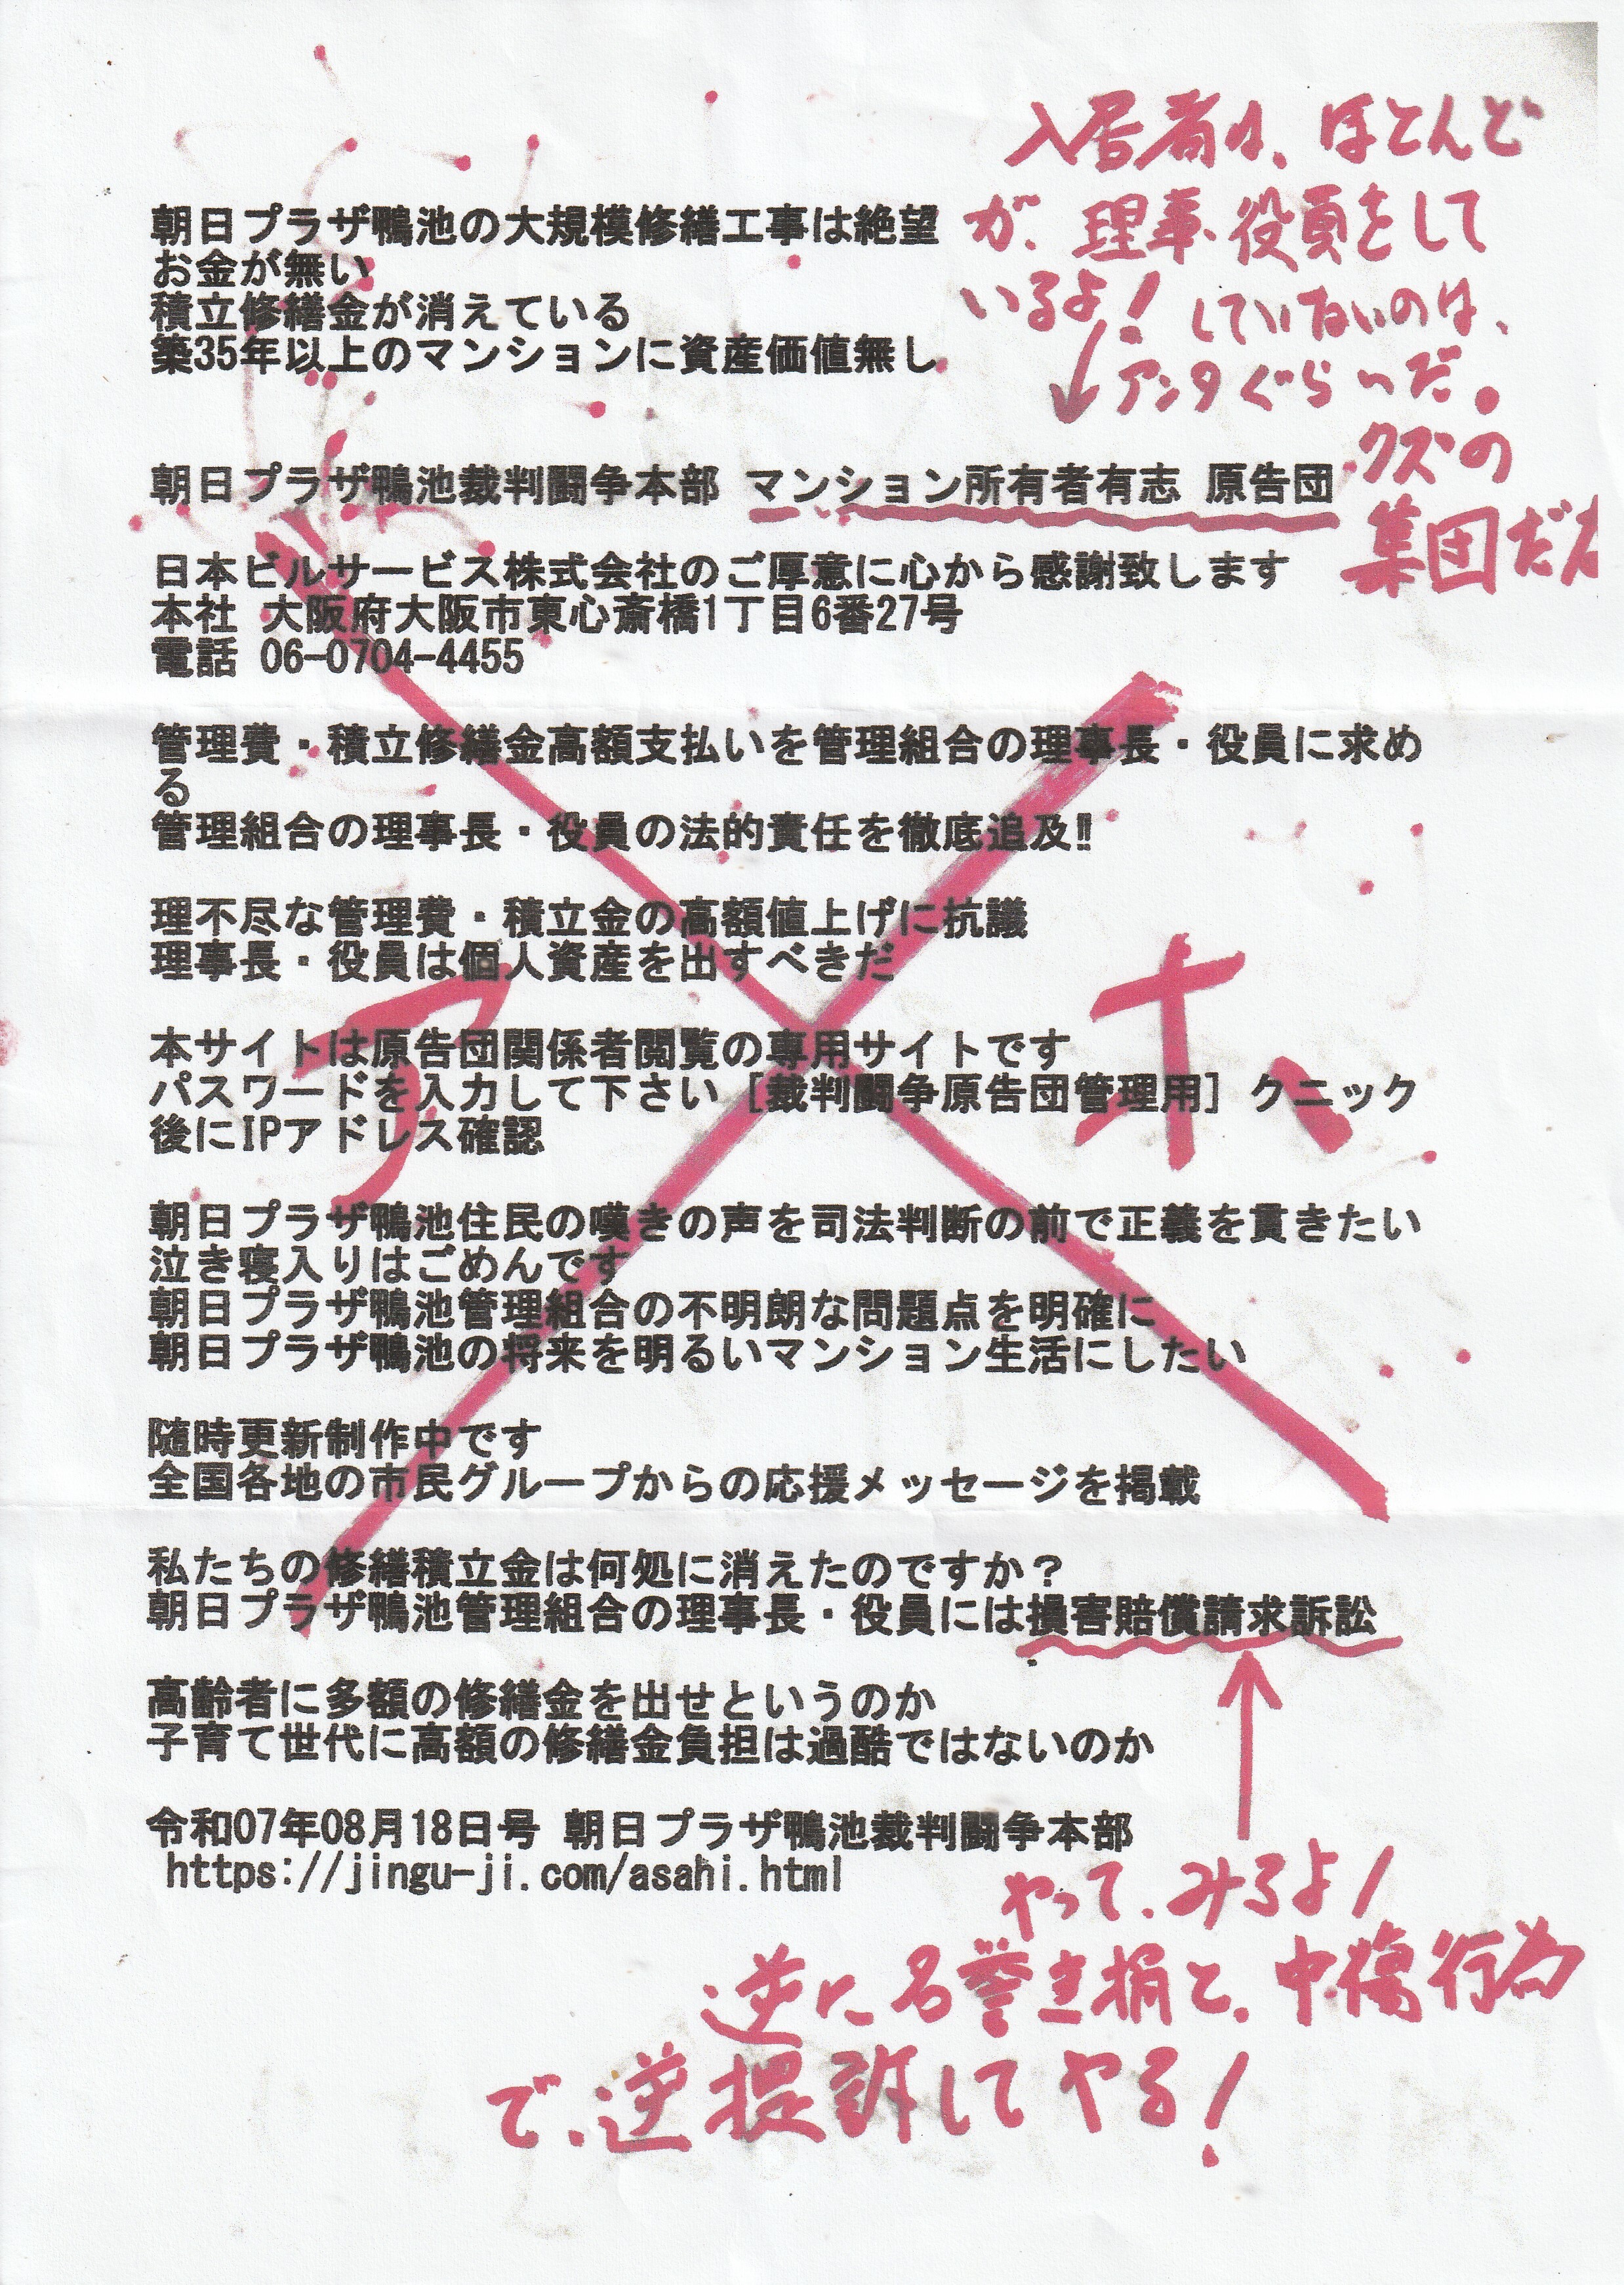 入居者は、ほとんど
が、理事、役員をして
いるよ！していないのは、
アンタぐらいだ。
クズの
集団だな
朝日プラザ鴨池の大規模修繕工事は絶望
お金が無い
積立修繕金が消えている
築35年以上のマンションに資産価値無し
朝日プラザ鴨池裁判闘争本部 マンション所有者有志 原告団
日本ビルサービス株式会社のご厚意に心から感謝致します
本社 大阪府大阪市東心斎橋1丁目6番27号
電話 06-0704-4455
管理費・積立修繕金高額支払いを管理組合の理事長・役員に求め
る
管理組合の理事長・役員の法的責任を徹底追及!!
理不尽な管理費・積立金の高額値上げに抗議
理事長・役員は個人資産を出すべきだ
アホ
本サイトは原告団関係者閲覧の専用サイトです
パスワードを入力して下さい [裁判闘争原告団管理用] クニック
後にIPアドレス確認
朝日プラザ鴨池住民の嘆きの声を司法判断の前で正義を貫きたい
泣き寝入りはごめんです
朝日プラザ鴨池管理組合の不明朗な問題点を明確に
朝日プラザ鴨池の将来を明るいマンション生活にしたい
随時更新制作中です
全国各地の市民グループからの応援メッセージを掲載
私たちの修繕積立金は何処に消えたのですか？
朝日プラザ鴨池管理組合の理事長・役員には損害賠償請求訴訟
高齢者に多額の修繕金を出せというのか
子育て世代に高額の修繕金負担は過酷ではないのか
令和07年08月18日号 朝日プラザ鴨池裁判闘争本部
https://jingu-ji.com/asahi.html
やって、みろよ！
逆に名誉き損と、中傷行為
で、逆提訴してやる！